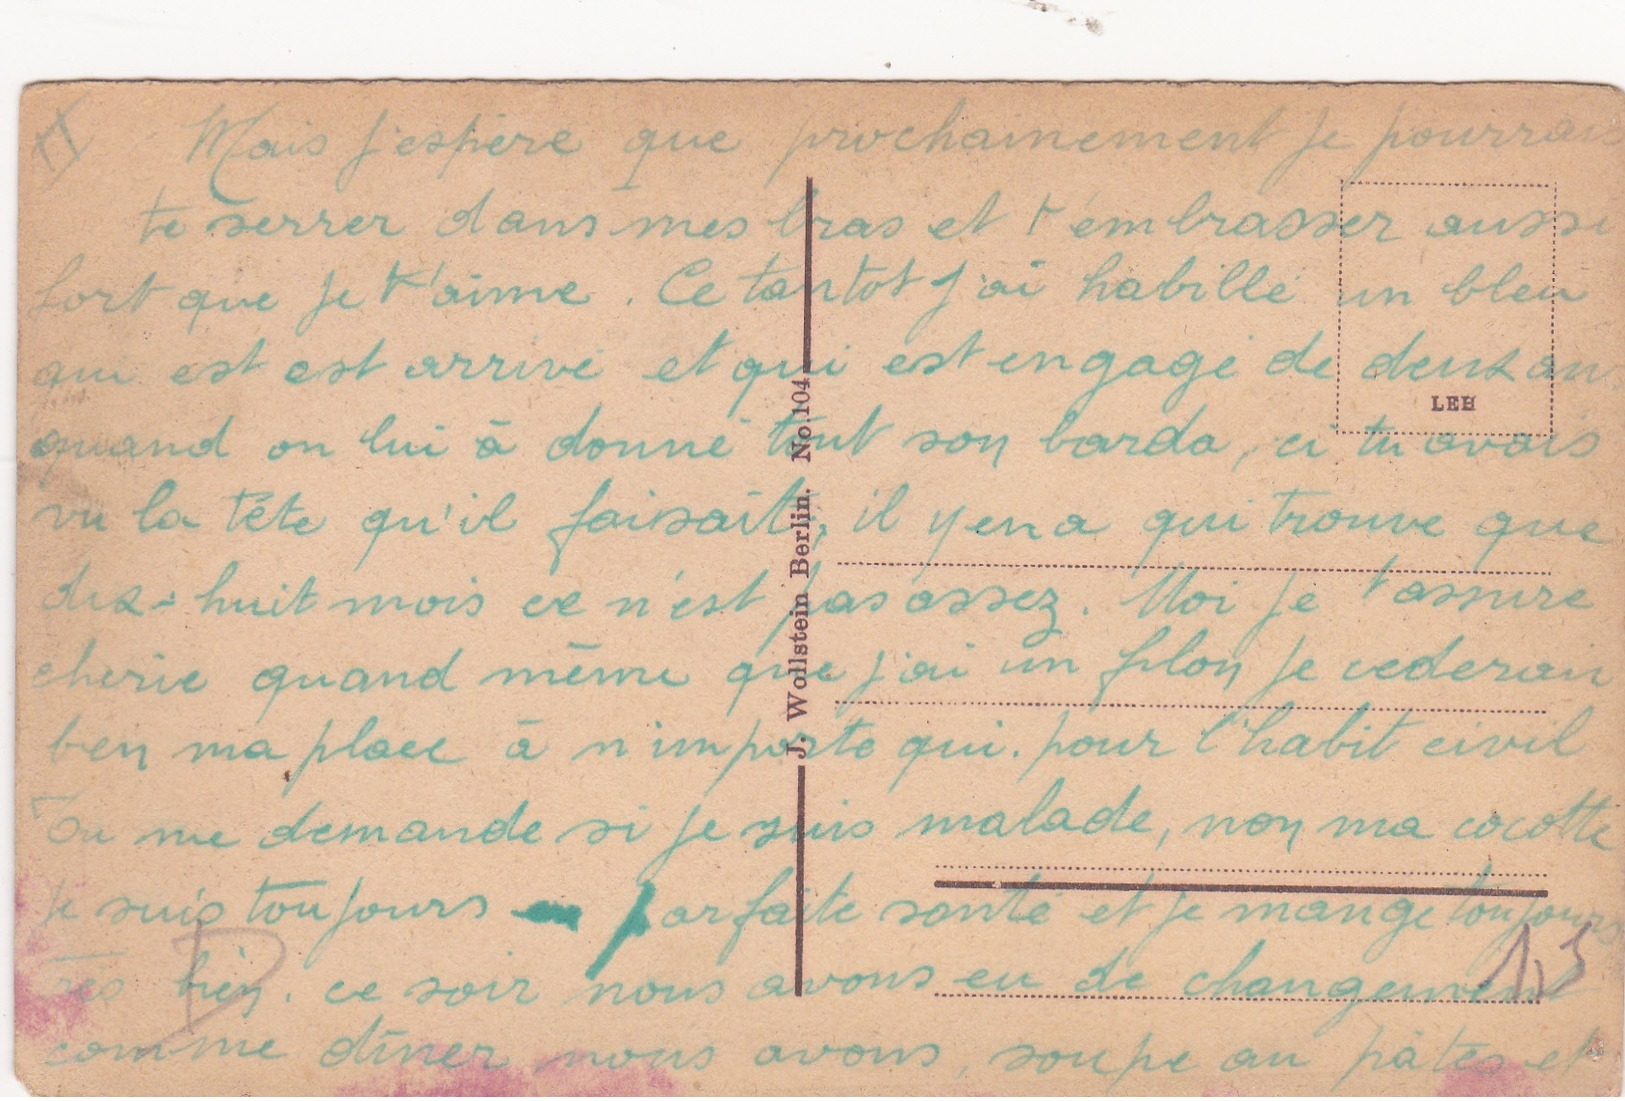 Mais j'espère que prochainement je pourrais
te serrer dans mes bras et t'embrasser aussi
fort que je t'aime. Ce tantot j'ai habillé un bleu
qui est est arrivé et qui est engagé de deux ans
LEH
quand on lui à donné tout son barda, ci tu avais
vu la tête qu'il faisait, il y en a qui trouve que
dix-huit mois ce n'est pas assez. Moi je t'assure
cherie quand même que j'ai un filon je cederais
bien ma place à n'importe qui. pour l'habit civil
Tu me demande si je suis malade, non ma cocotte
je suis toujours en parfaite santé et je mange toujours
très bien. ce soir nous avons eu de changement
comme dîner nous avons, soupe au pâtes et
J. Wollstein Berlin. No. 104
D